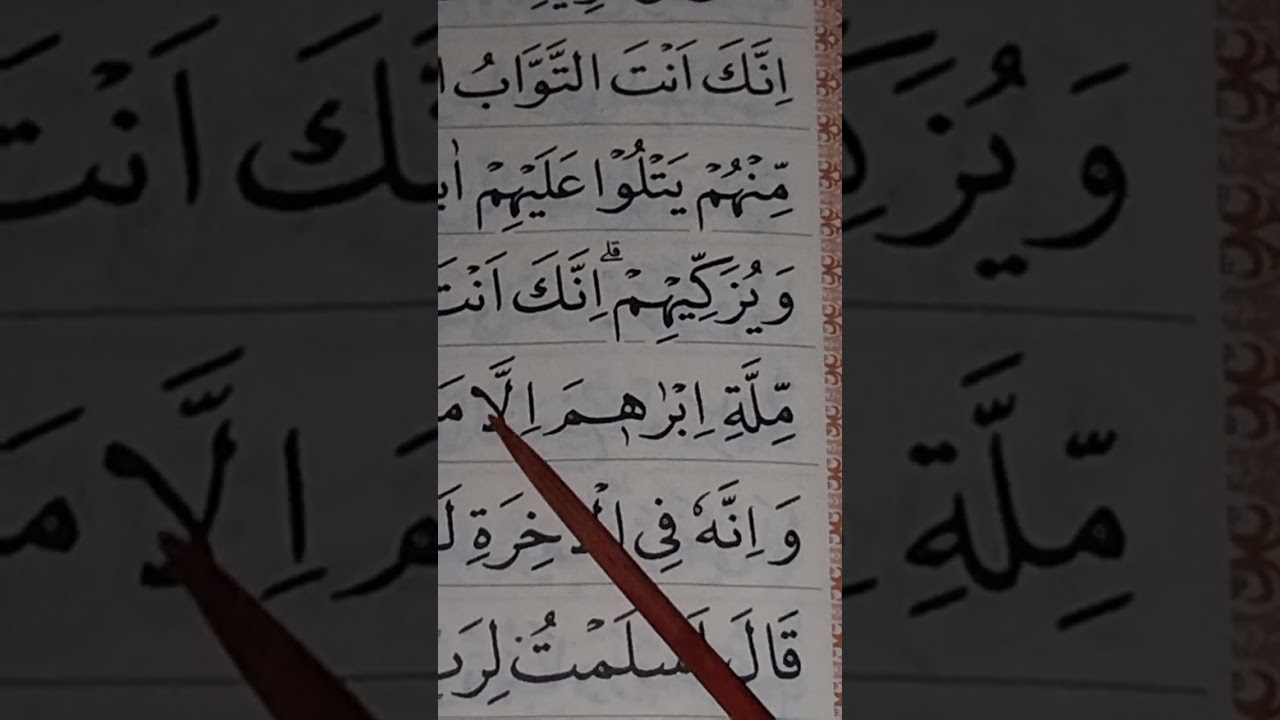 اِنَّكَ اَنْتَ التَّوَّابُ
مِّنْهُمْ يَتْلُوْا عَلَيْهِمْ
وَيُزَكِّيْهِمْ ؕ اِنَّكَ اَنْتَ
مِّلَّةِ اِبْرٰهٖمَ اِلَّا
وَاِنَّهٗ فِي الْاٰخِرَةِ
قَالَ اَسْلَمْتُ